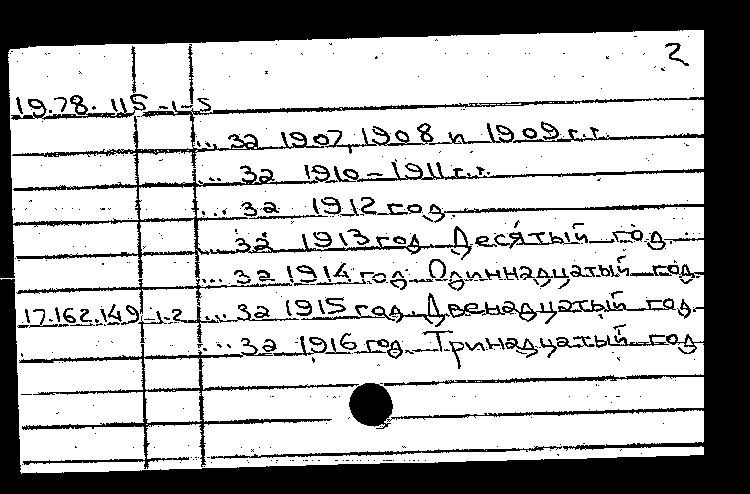 2
19.78.115-1-5
... за 1907, 1908 и 1909 г.г.
... за 1910-1911 г.г.
... за 1912 год.
... за 1913 год. Десятый год.
... за 1914 год. Одиннадцатый год.
17.162.149 1-2 ... за 1915 год. Двенадцатый год.
... за 1916 год. Тринадцатый год